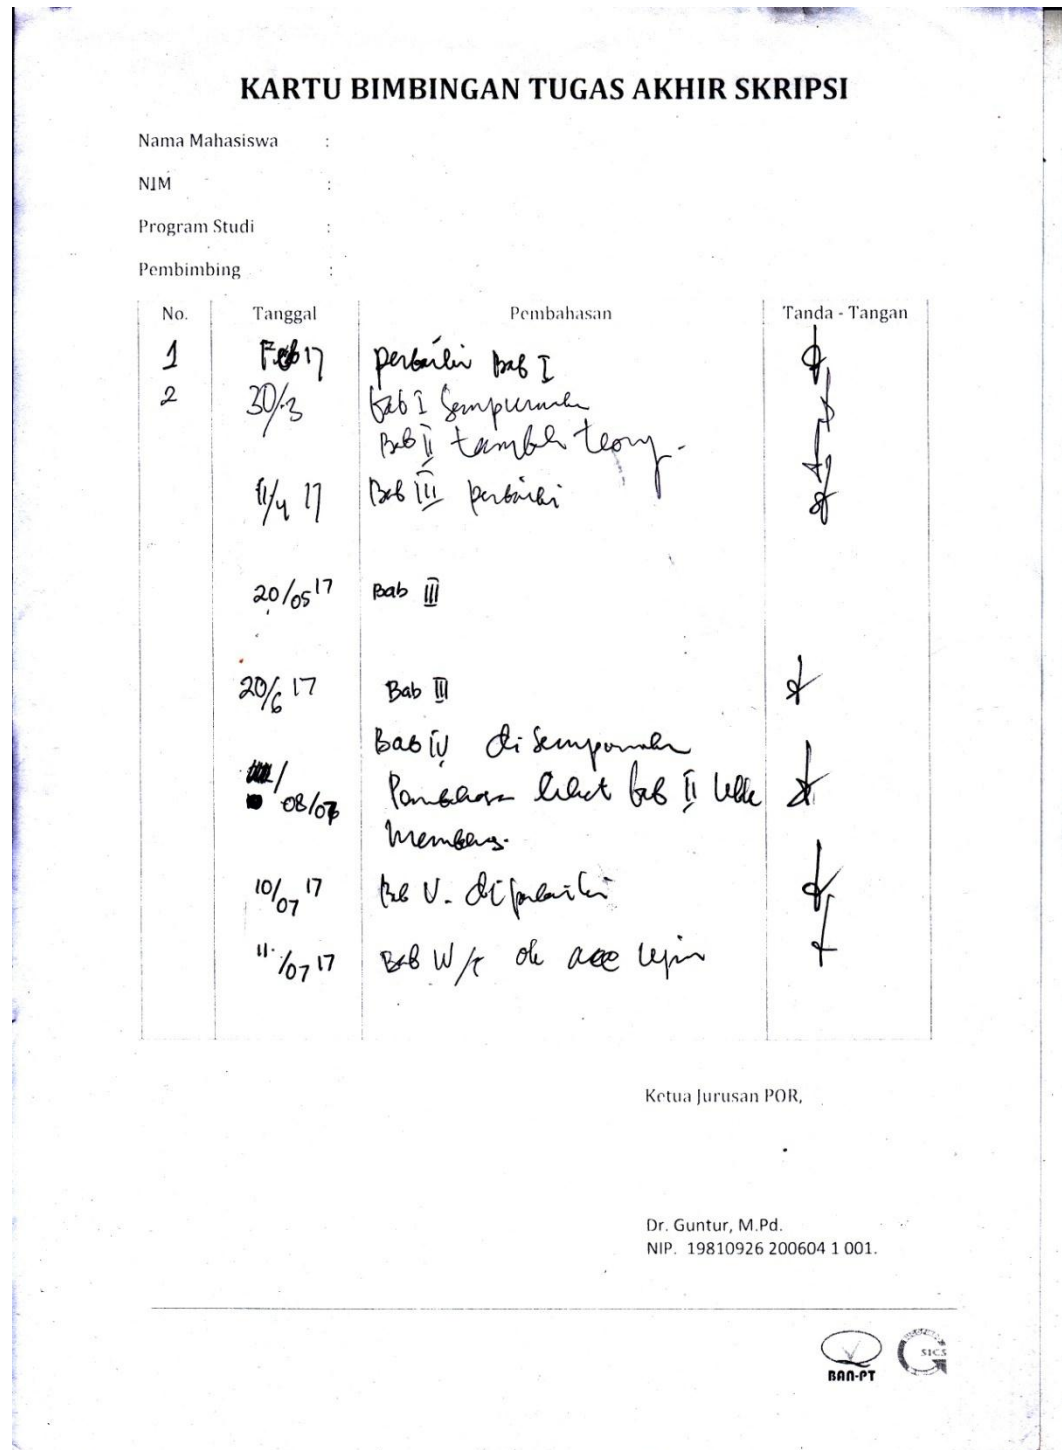 KARTU BIMBINGAN TUGAS AKHIR SKRIPSI
Nama Mahasiswa :
NIM :
Program Studi :
Pembimbing :
No. Tanggal Pembahasan Tanda - Tangan
1 Feb 17 perbaiki Bab I
2 30/3 Bab I Sempurnak
Bab II tambah teory -
11/4 17 Bab III perbaiki
20/05 17 Bab III
20/6 17 Bab III
Bab IV di Sempurnak
08/07 lihat bab II
10/07 17 Bab V. diperbaiki
11/07 17 Bab ok acc
Ketua Jurusan POR,
Dr. Guntur, M.Pd.
NIP. 19810926 200604 1 001.
SICS
BAN-PT